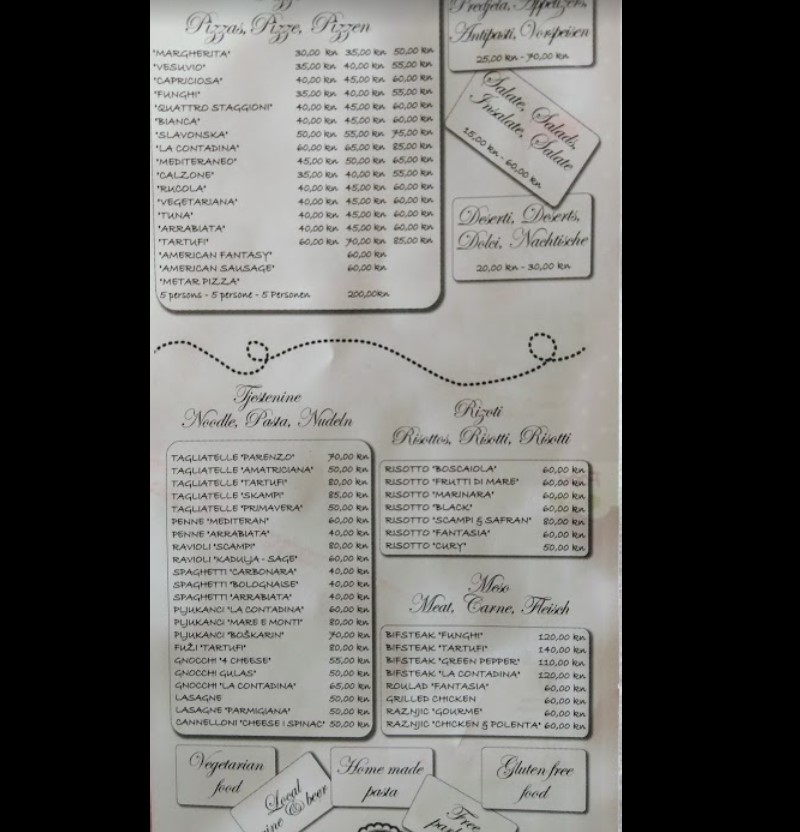 Pizzas, Pizze, Pizzen
"MARGHERITA" 30,00 kn 35,00 kn 50,00 kn
"VESUVIO" 35,00 kn 40,00 kn 55,00 kn
"CAPRICIOSA" 40,00 kn 45,00 kn 60,00 kn
"FUNGHI" 35,00 kn 40,00 kn 55,00 kn
"QUATTRO STAGGIONI" 40,00 kn 45,00 kn 60,00 kn
"BIANCA" 40,00 kn 45,00 kn 60,00 kn
"SLAVONSKA" 50,00 kn 55,00 kn 75,00 kn
"LA CONTADINA" 60,00 kn 65,00 kn 85,00 kn
"MEDITERANEO" 45,00 kn 50,00 kn 65,00 kn
"CALZONE" 35,00 kn 40,00 kn 55,00 kn
"RUCOLA" 40,00 kn 45,00 kn 60,00 kn
"VEGETARIANA" 40,00 kn 45,00 kn 60,00 kn
"TUNA" 40,00 kn 45,00 kn 60,00 kn
"ARRABIATA" 40,00 kn 45,00 kn 60,00 kn
"TARTUFI" 60,00 kn 70,00 kn 85,00 kn
"AMERICAN FANTASY" 60,00 kn
"AMERICAN SAUSAGE" 60,00 kn
"METAR PIZZA"
5 persons - 5 persone - 5 Personen 200,00kn
Predjela, Appetizers,
Antipasti, Vorspeisen
25,00 kn - 70,00 kn
Salate, Salads,
Insalate, Salate
15,00 kn - 60,00 kn
Deserti, Deserts,
Dolci, Nachtische
20,00 kn - 30,00 kn
Tjestenine
Noodle, Pasta, Nudeln
TAGLIATELLE "PARENZO" 70,00 kn
TAGLIATELLE "AMATRICIANA" 50,00 kn
TAGLIATELLE "TARTUFI" 80,00 kn
TAGLIATELLE "SKAMPI" 85,00 kn
TAGLIATELLE "PRIMAVERA" 50,00 kn
PENNE "MEDITERAN" 60,00 kn
PENNE "ARRABIATA" 40,00 kn
RAVIOLI "SCAMPI" 80,00 kn
RAVIOLI "KADULJA - SAGE" 60,00 kn
SPAGHETTI "CARBONARA" 40,00 kn
SPAGHETTI "BOLOGNAISE" 40,00 kn
SPAGHETTI "ARRABIATA" 40,00 kn
PLJUKANCI "LA CONTADINA" 60,00 kn
PLJUKANCI "MARE E MONTI" 80,00 kn
PLJUKANCI "BOŠKARIN" 70,00 kn
FUŽI "TARTUFI" 80,00 kn
GNOCCHI "4 CHEESE" 55,00 kn
GNOCCHI GULAS" 50,00 kn
GNOCCHI "LA CONTADINA" 65,00 kn
LASAGNE 50,00 kn
LASAGNE "PARMIGIANA" 50,00 kn
CANNELLONI "CHEESE I SPINAC" 50,00 kn
Rizoti
Risottos, Risotti, Risotti
RISOTTO "BOSCAIOLA" 60,00 kn
RISOTTO "FRUTTI DI MARE" 60,00 kn
RISOTTO "MARINARA" 60,00 kn
RISOTTO "BLACK" 60,00 kn
RISOTTO "SCAMPI & SAFRAN" 80,00 kn
RISOTTO "FANTASIA" 60,00 kn
RISOTTO "CURY" 50,00 kn
Meso
Meat, Carne, Fleisch
BIFSTEAK "FUNGHI" 120,00 kn
BIFSTEAK "TARTUFI" 140,00 kn
BIFSTEAK "GREEN PEPPER" 110,00 kn
BIFSTEAK "LA CONTADINA" 120,00 kn
ROULAD "FANTASIA" 60,00 kn
GRILLED CHICKEN 60,00 kn
RAZNJIC "GOURME" 60,00 kn
RAZNJIC "CHICKEN & POLENTA" 60,00 kn
Vegetarian
food
Local
& beer
Home made
pasta
Free
Gluten free
food